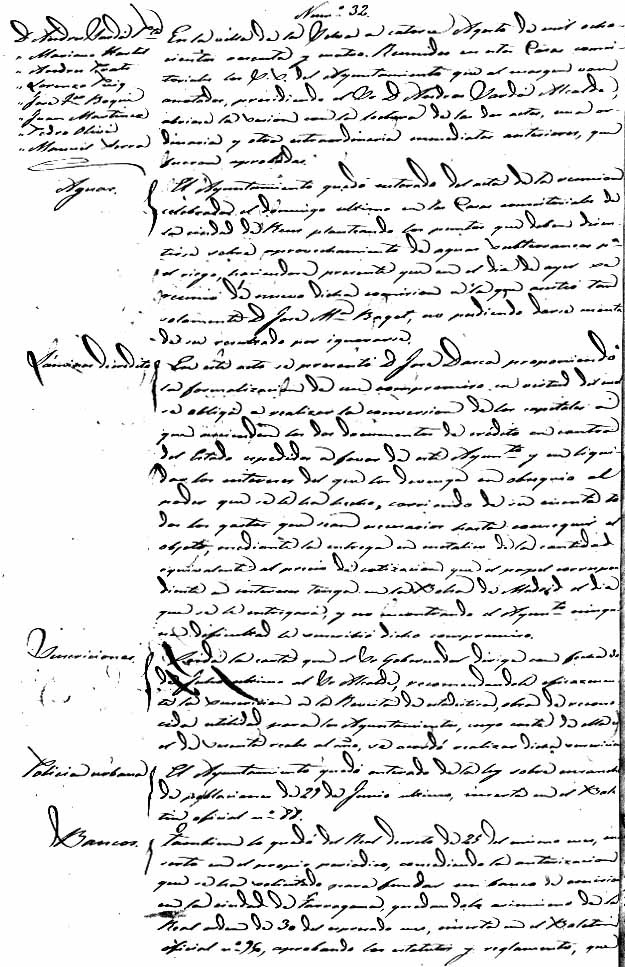 Num.º 32.
D. Andres
Mariano
Andres
Lorenzo Puig
José Mª Boqué
Juan Martinez
Pedro Olivé
Manuel Serra
En la villa de la Selva a catorce Agosto de mil ocho
cientos sesenta y cuatro. Reunidos en estas Casas consis
toriales los S.S. del Ayuntamiento que al margen van
anotados, presidiendo el Sr. D. Andres Alcalde,
abriose la sesion con la lectura de las dos actas, una or
dinaria y otra extraordinaria inmediatas anteriores, que
fueron aprobadas.
Aguas.
El Ayuntamiento quedó enterado del acta de la reunion
celebrada el domingo ultimo en las Casas consistoriales de
la ciudad de Reus planteando los puntos que deben discu
tirse sobre aprovechamiento de aguas subterraneas pª
el riego, haciendose presente que en el dia de ayer se
reunió de nuevo dicha comision a la que asistió tan
solamente D. José Mª Boqué, no pudiendo darse cuenta
de su resultado por ignorarse.
En este acto se presentó D. José proponiendo
la formalizacion de un compromiso en virtud del cual
se obliga a realizar la conversion de los capitales a
que ascienden los dos documentos de crédito en contra
del Estado expedidos a favor de este Ayuntº y en liqui
dar los intereses del que los devenga en obsequio al
poder que se le ha hecho, corriendo de su cuenta to
dos los gastos que sean necesarios hasta conseguir el
objeto, mediante la entrega en metalico de la cantidad
equivalente al precio de cotizacion que el papel correspon
diente a intereses tenga en la Bolsa de Madrid el dia
que se le entregará, y no encontrando el Ayuntº ningu
na dificultad la suscribió dicho compromiso.
Suscriciones.
Leida la carta que el Sr. Gobernador dirige con fecha
de ultimo al Sr. Alcalde, recomendando eficazmen
te la suscricion a la Revista de estadistica, obra de recono
cida utilidad para los Ayuntamientos, cuyo coste de ella
es de sesenta reales al año, se acordó realizar dicha suscricion
Policia urbana
El Ayuntamiento quedó enterado de la ley sobre ensanche
de poblaciones de 29 de Junio ultimo, inserta en el Bole
tin oficial nº 88.
Bancos.
Tambien lo quedó del Real decreto de 25 del mismo mes, in
serto en el propio periodico, concediendo la autorizacion
que se ha solicitado para fundar un banco de emision
en la ciudad de Tarragona, quedandolo asimismo de la
Real orden de 30 del espresado mes, inserta en el Boletin
oficial nº 96, aprobando los estatutos y reglamentos, que